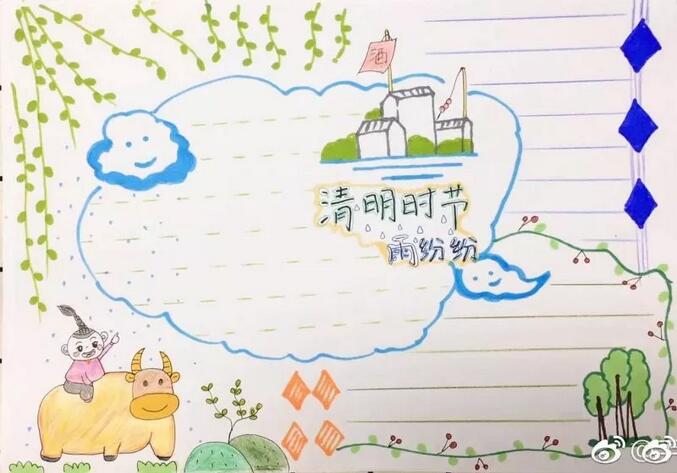 酒
清明时节
雨纷纷